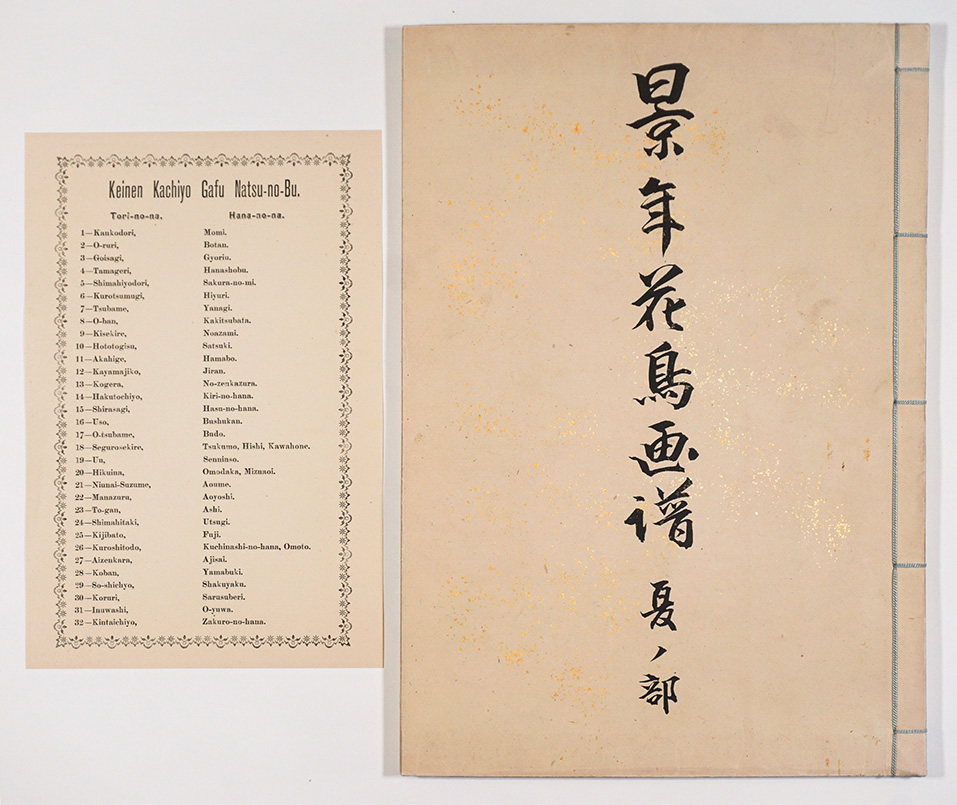 Keinen Kachiyo Gafu Natsu-no-Bu.
Tori-no-na. Hana-no-na.
1—Kaukodori, Momi.
2—O-ruri, Botan.
3—Goisagi, Gyoriu.
4—Tamageri, Hanashobu.
5—Shimahiyodori, Sakura-no-mi.
6—Kurotsumugi, Hiyuri.
7—Tsubame, Yanagi.
8—O-ban, Kakitsubata.
9—Kisekire, Noazami.
10—Hototogisu, Satsuki.
11—Akahige, Hamabo.
12—Kayamajiko, Jiran.
13—Kogera, No-zenkazura.
14—Hakutochiyo, Kiri-no-hana.
15—Shirasagi, Hasu-no-hana.
16—Uso, Bushukan.
17—O-tsubame, Budo.
18—Segurosekire, Tsukumo, Hishi, Kawahone.
19—Uu, Senninso.
20—Hikuina, Omodaka, Mizuaoi.
21—Niunai-Suzume, Aoume.
22—Manazuru, Aoyoshi.
23—To-gan, Ashi.
24—Shimahitaki, Utsugi.
25—Kijibato, Fuji.
26—Kuroshitodo, Kuchinashi-no-hana, Omoto.
27—Aizenkara, Ajisai.
28—Koban, Yamabuki.
29—So-shichyo, Shakuyaku.
30—Koruri, Sarusuberi.
31—Inuwashi, O-yuwa.
32—Kintaichiyo, Zakuro-no-hana.
景年花鳥画譜 夏ノ部